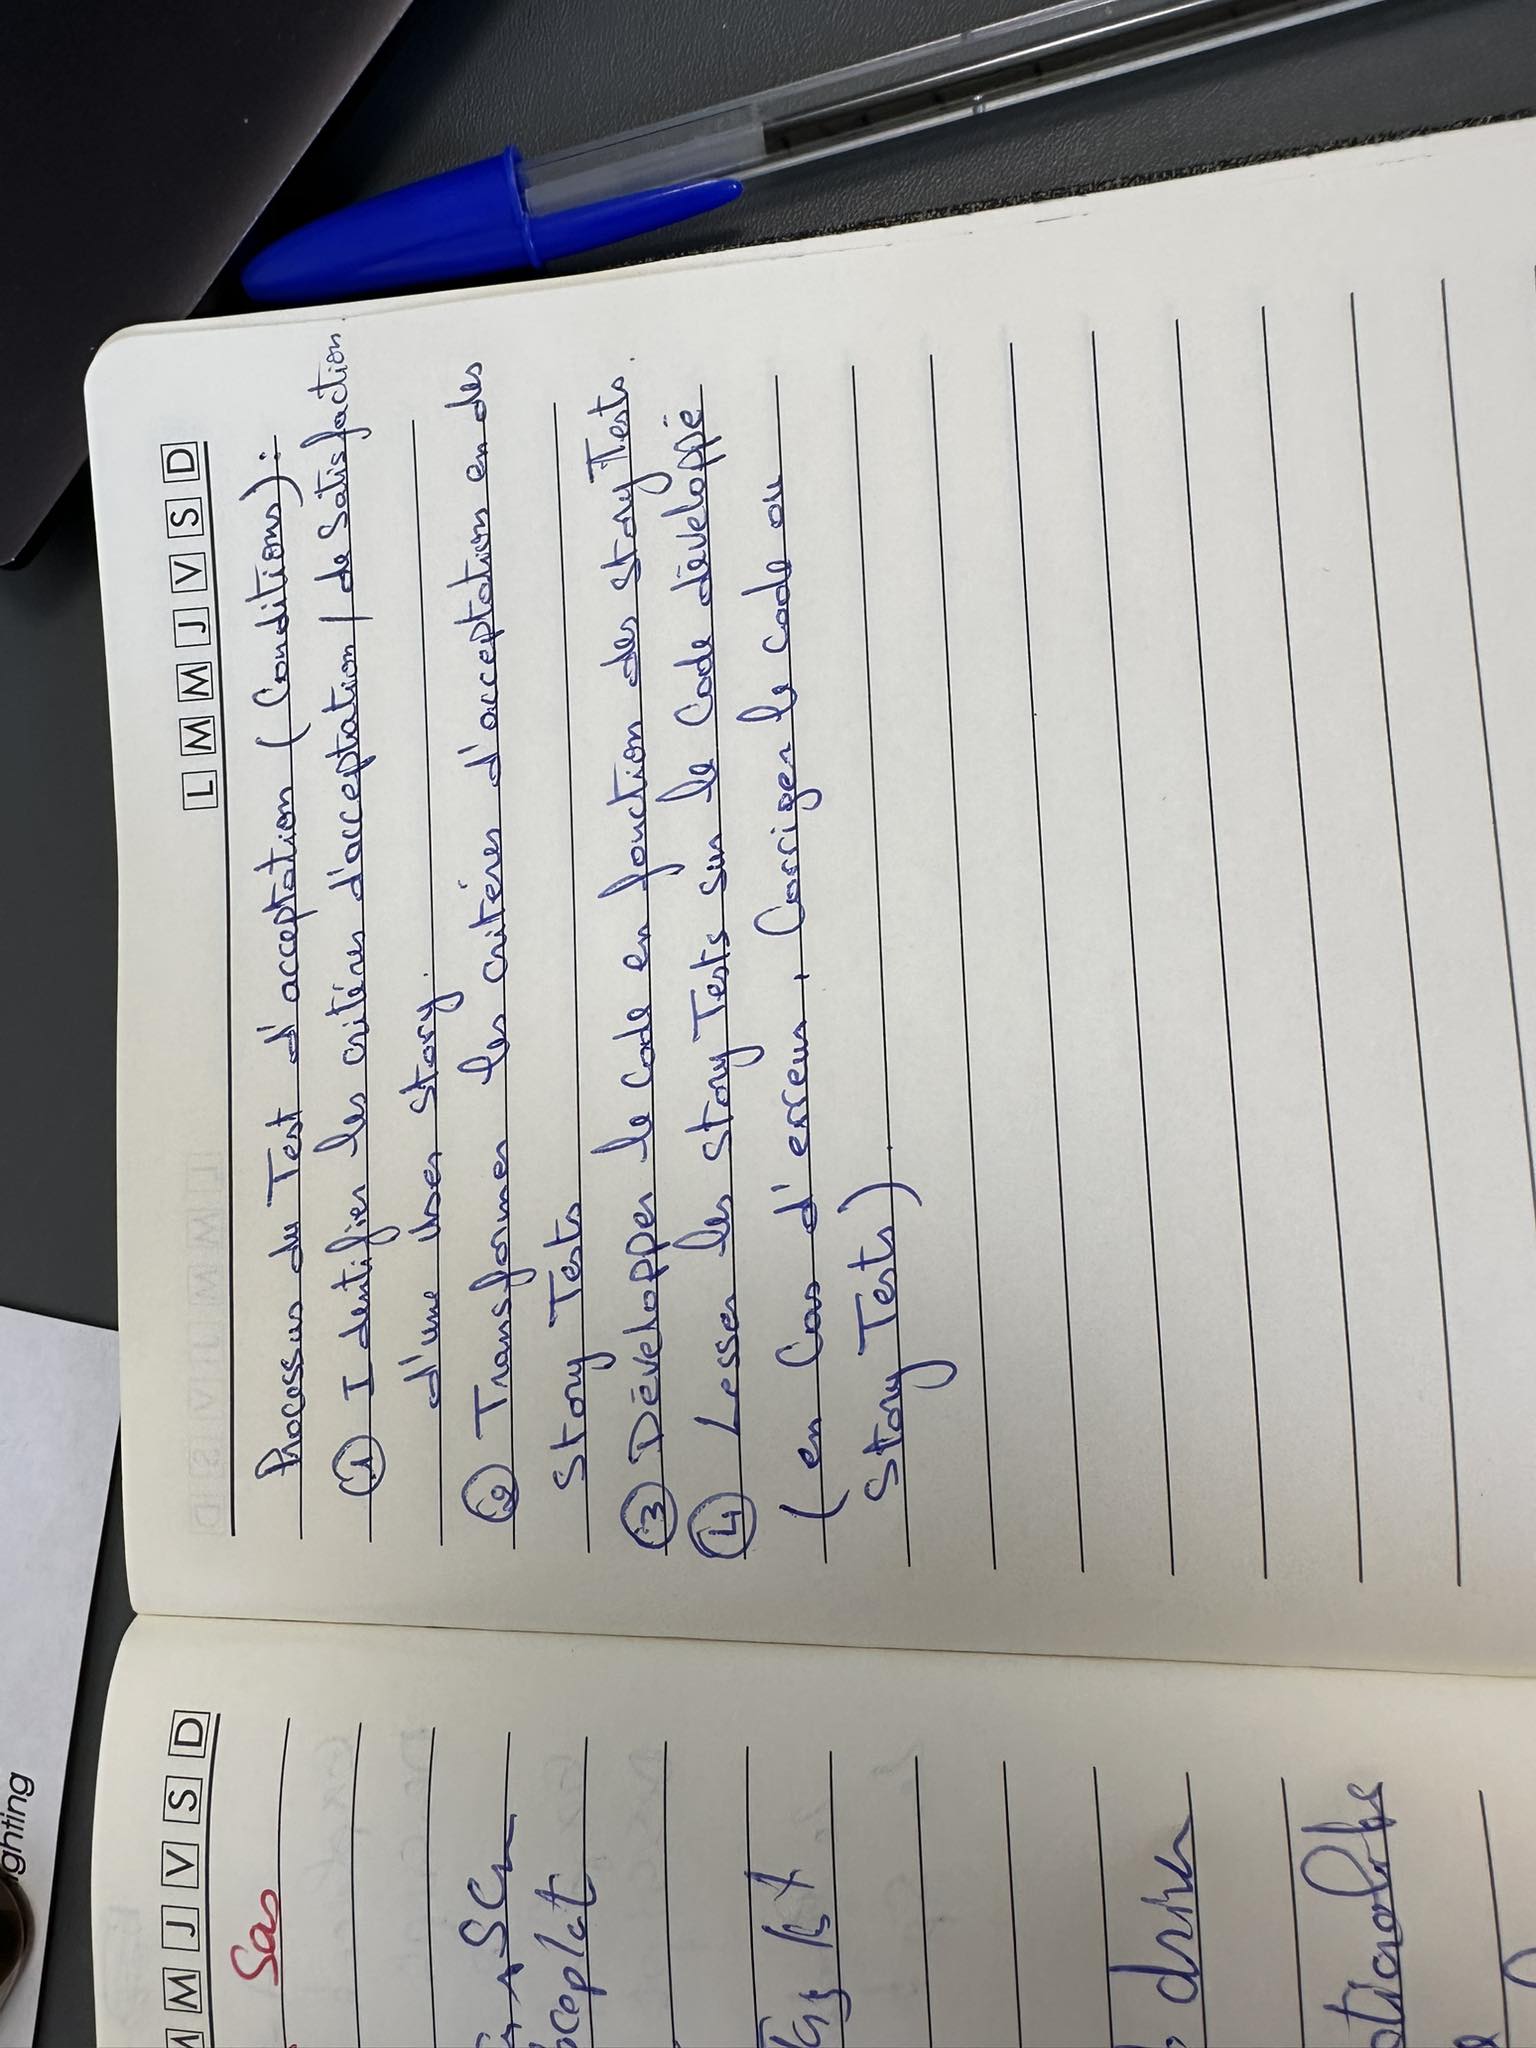 ghting
M J V S D
Sas
driver
L M M J V S D
Processus du Test d'acceptation (Conditions):
① Identifier les critéres d'acceptation / de Satisfaction
d'une User Story.
② Transformer les critéres d'acceptation en des
Story Tests
③ Développer le Code en fonction des story Tests.
④ Lesser les story Tests sur le Code développé
(en Cas d'erreur, Corriger le Code ou
Story Tests).